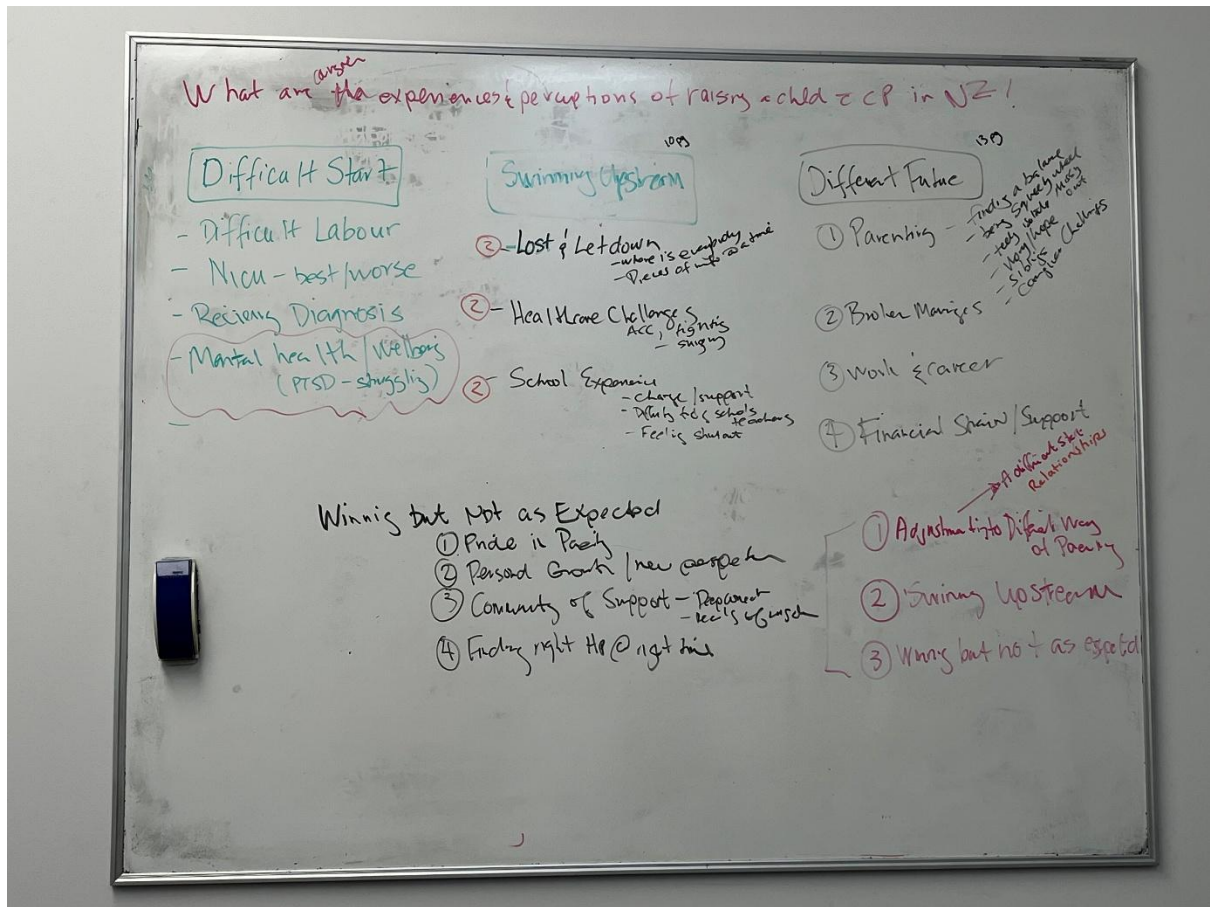 What are the experiences & perceptions of raising a child c̄ CP in NZ!
carer
Difficult Start
- Difficult Labour
- NICU - best/worse
- Recieving Diagnosis
- Mental health / Wellbeing
(PTSD - struggling)
10 pg
Swimming Upstream
② - Lost & Let down
- where is everybody
- Pieces of info @ a time
② - Healthcare Challenges
ACC, fighting
② - School Experience
- charge / support
- schools
teachers
- Feeling shut out
13 pg
Different Future
① Parenting - finding a balance
- being squeeky wheel
- Miss out
- / hope
- Siblings
- Challenges
② Broken Marriages
③ Work & career
④ Financial Strain / Support
Winnig but Not as Expected
① Pride in
② Personal Growth / new
③ Community of Support -
④ Finding right HP @ right time
A difficult start
Relationships
① Adjustmenting to Different Way
of Parenting
② Swimming Upstream
③ Winnig but not as expectd